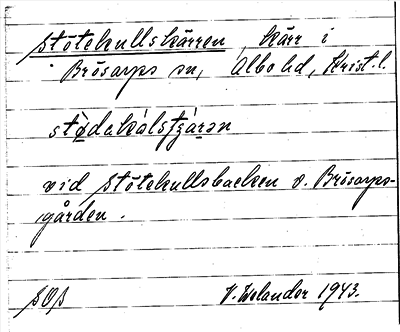 Stötekullskärren, kärr i
Brösarps sn, Albo hd, Krist. l.
stø̀dakálsʃɛ́rən
vid Stötekullsbacken v. Brösarps-
gården.
SOS
V. Welander 1943.